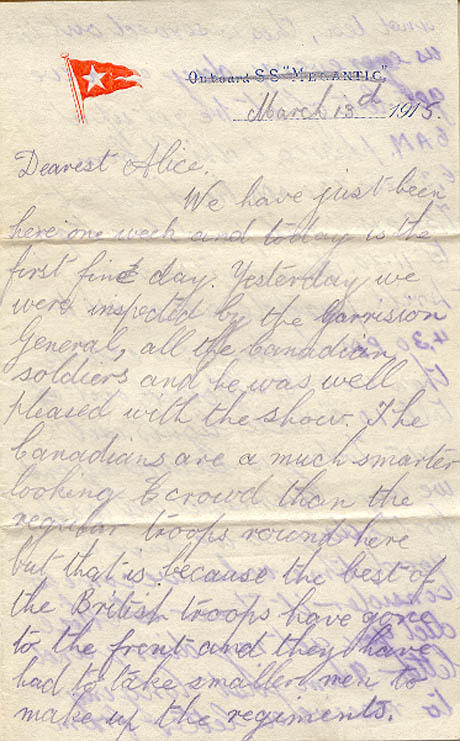 On board S S "MEGANTIC".
March 13d 1915.
Dearest Alice.
We have just been
here one week and today is the
first fine day. Yesterday we
were inspected by the Garrision
General, all the Canadian
soldiers and he was well
pleased with the show. The
Canadians are a much smarter
looking crowd than the
regular troops round here
but that is because the best of
the British troops have gone
to the front and they have
had to take smaller men to
make up the regiments.